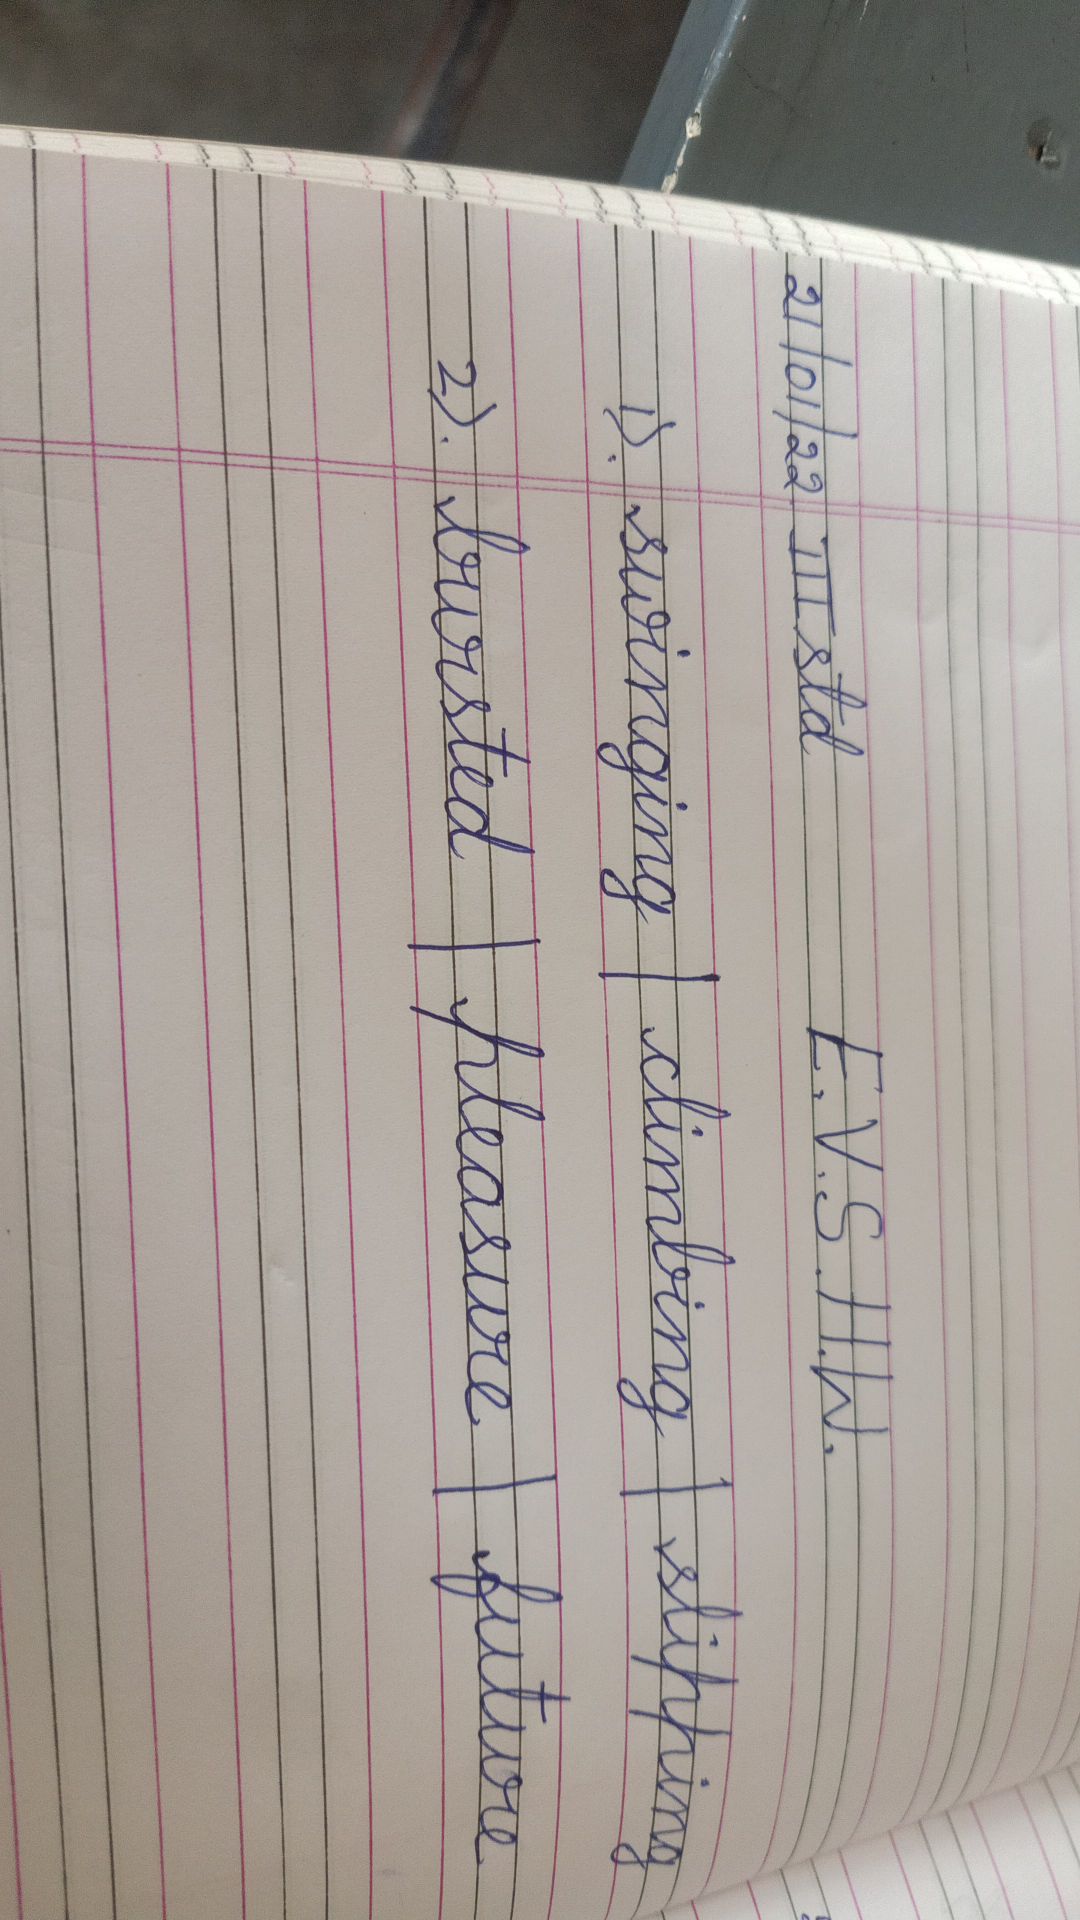 21/01/22 III std E.V.S. H.W.
1). swinging | climbing | slipping
2). bursted | pleasure | future